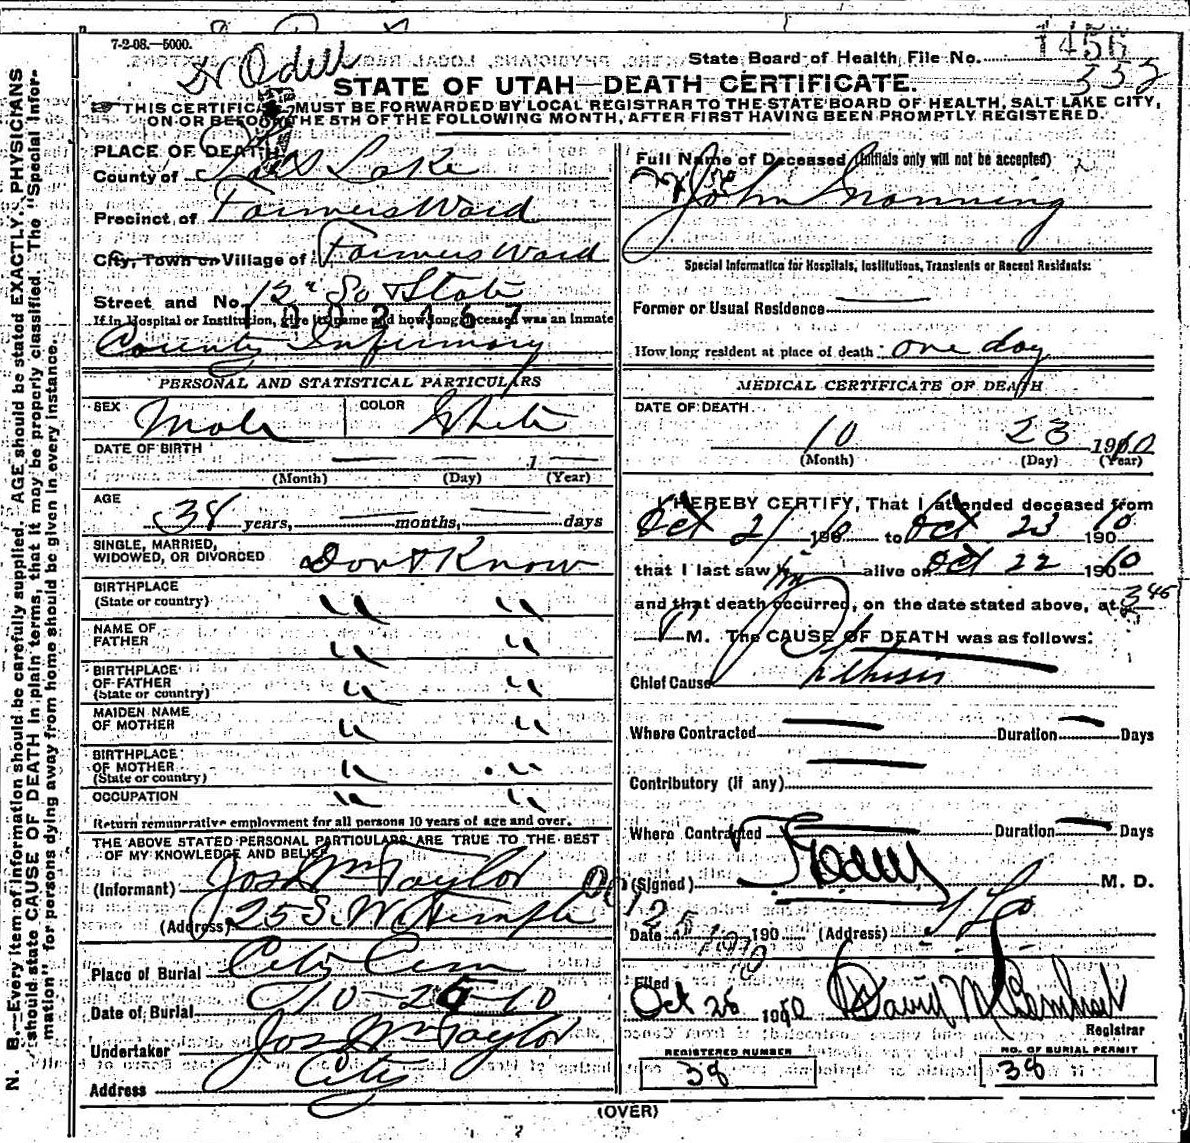 7-2-08.—5000.
H Odell
State Board of Health File No. 1456
352
STATE OF UTAH—DEATH CERTIFICATE.
THIS CERTIFICATE MUST BE FORWARDED BY LOCAL REGISTRAR TO THE STATE BOARD OF HEALTH, SALT LAKE CITY,
ON OR BEFORE THE 5TH OF THE FOLLOWING MONTH, AFTER FIRST HAVING BEEN PROMPTLY REGISTERED.
PLACE OF DEATH
County of Salt Lake
Precinct of Farmers Ward
City, Town or Village of Farmers Ward
Street and No. 12" So State
If in Hospital or Institution, give its name and how long deceased was an inmate
1002457
County Infirmary
PERSONAL AND STATISTICAL PARTICULARS
SEX Male COLOR White
DATE OF BIRTH
(Month) (Day) (Year)
AGE
38 years, months, days
SINGLE, MARRIED,
WIDOWED, OR DIVORCED Dont Know
BIRTHPLACE
(State or country) " "
NAME OF
FATHER " "
BIRTHPLACE
OF FATHER
(State or country) " "
MAIDEN NAME
OF MOTHER " "
BIRTHPLACE
OF MOTHER
(State or country) " "
OCCUPATION " "
Return remunerative employment for all persons 10 years of age and over.
THE ABOVE STATED PERSONAL PARTICULARS ARE TRUE TO THE BEST
OF MY KNOWLEDGE AND BELIEF
(Informant) Jos Wm Taylor
(Address) 25 S. W. Temple
Place of Burial City Cem
Date of Burial 10-25-10
Undertaker Jos Wm Taylor
Address City
Full Name of Deceased (Initials only will not be accepted)
John
Special Information for Hospitals, Institutions, Transients or Recent Residents:
Former or Usual Residence
How long resident at place of death: one day
MEDICAL CERTIFICATE OF DEATH
DATE OF DEATH
10 23 1910
(Month) (Day) (Year)
I HEREBY CERTIFY, That I attended deceased from
Oct 21 190 to Oct 23 10 190
that I last saw him alive on Oct 22 1910
and that death occurred, on the date stated above, at 3 45
P M. The CAUSE OF DEATH was as follows:
Chief Cause Phthisis
Where Contracted Duration Days
Contributory (if any)
Where Contracted Duration Days
(Signed) M. D.
Date 190 (Address)
1910
Filed
Oct 26 1910
Registrar
REGISTERED NUMBER
38
NO. OF BURIAL PERMIT
38
(OVER)
N. B.—Every item of information should be carefully supplied. AGE should be stated EXACTLY. PHYSICIANS
should state CAUSE OF DEATH in plain terms, that it may be properly classified. The "Special Infor-
mation" for persons dying away from home should be given in every instance.